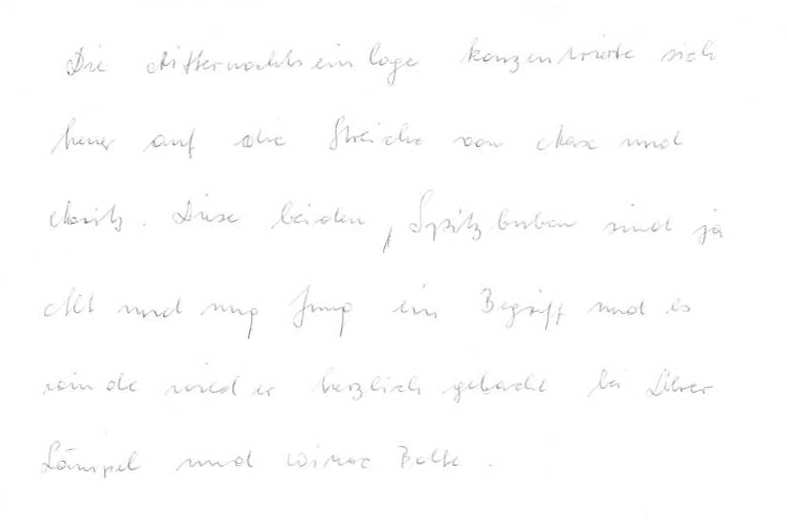 Die Mitternachtseinlage konzentrierte sich
heuer auf die Streiche von Max und
Moritz. Diese beiden Spitzbuben sind ja
Alt und Jung ein Begriff und es
wurde wieder herzlich gelacht bei Lehrer
Lämpel und Witwe Bolte.